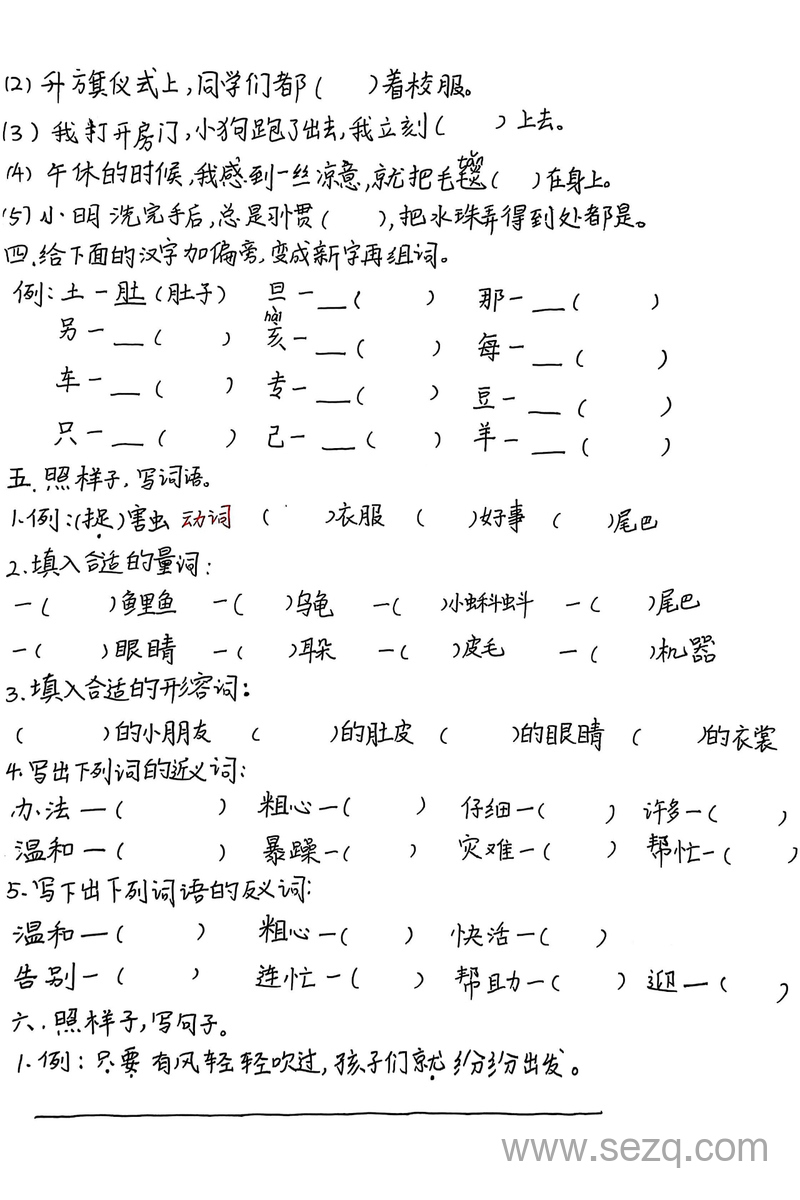 (2) 升旗仪式上,同学们都(    )着校服。
(3) 我打开房门,小狗跑了出去,我立刻(    )上去。
(4) 午休的时候,我感到一丝凉意,就把毛毯(tǎn)(    )在身上。
(5) 小明洗完手后,总是习惯(    ),把水珠弄得到处都是。
四.给下面的汉字加偏旁,变成新字再组词。
例:土一肚(肚子)  旦一__(    )  那一__(    )
另一__(    )  亥(hài)一__(    )  每一__(    )
车一__(    )  专一__(    )  豆一__(    )
只一__(    )  己一__(    )  羊一__(    )
五.照样子,写词语。
1.例:(捉)害虫 动词 (    )衣服 (    )好事 (    )尾巴
2.填入合适的量词:
一(    )鲤鱼 一(    )乌龟 一(    )小蝌蚪 一(    )尾巴
一(    )眼睛 一(    )耳朵 一(    )皮毛 一(    )机器
3.填入合适的形容词:
(    )的小朋友 (    )的肚皮 (    )的眼睛 (    )的衣裳
4.写出下列词的近义词:
办法一(    ) 粗心一(    ) 仔细一(    ) 许多一(    )
温和一(    ) 暴躁一(    ) 灾难一(    ) 帮忙一(    )
5.写下出下列词语的反义词:
温和一(    ) 粗心一(    ) 快活一(    )
告别一(    ) 连忙一(    ) 帮助一(    ) 迎一(    )
六.照样子,写句子。
1.例:只要有风轻轻吹过,孩子们就纷纷出发。
www.sezq.com